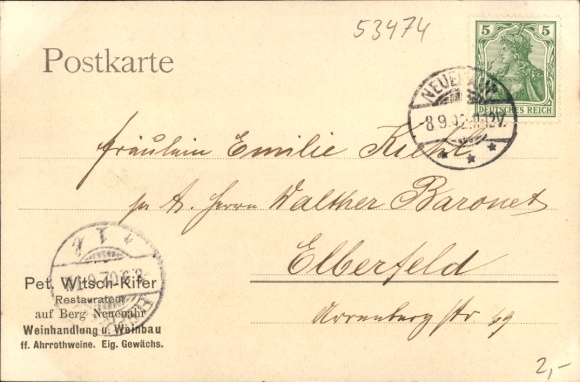 53474
Postkarte
5 5
DEUTSCHES REICH
NEUENAHR
8.9.02. 11-12V.
Fräulein Emilie
pr. A. Herrn Walther Baronet
Elberfeld
Arrenberg str 69
Pet. Witsch-Kifer
Restaurateur
auf Berg Neuenahr
Weinhandlung u. Weinbau
ff. Ahrrothweine. Eig. Gewächs.
2,-